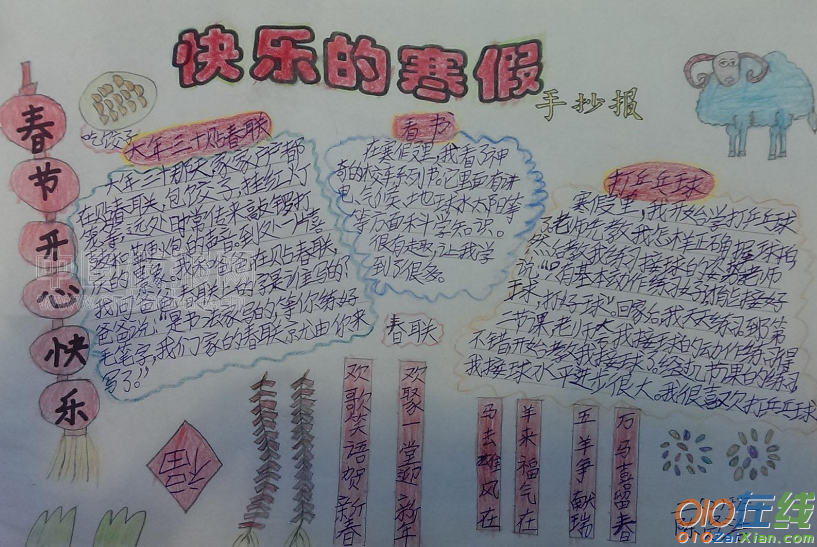 快乐的寒假
手抄报
春节开心快乐
吃饺子
大年三十贴春联
大年三十那天家家户户都
在贴春联,包饺子,挂红灯
笼等,远处时常传来敲锣打
鼓和鞭炮的声音,到处一片喜
庆的景象。我和爸爸在贴春联,
我问爸爸春联上的字是谁写的?
爸爸说:“是书法家写的,等你练好
毛笔字,我们家的春联就由你来
写了。”
看书
在寒假里,我看了神
奇的校车系列书,它里面有讲
电、气候、地球、水、太阳等
等方面科学知识。
很有趣,让我学
到了很多。
打乒乓球
寒假里,我开始学打乒乓球
老师先教我怎样正确握球拍
然后教我练习接球的
说:“只有基本动作练好了才能接好
球,打好球”。回家后我天天练习,到第
二节课老师
不错开始教我接球了。经过几节课的练习
我接球水平进步很大。我很喜欢打乒乓球
春联
欢歌笑语贺新春
欢聚一堂迎新年
马去雄风在
羊来福气在
五羊争献瑞
万马喜留春
福
010在线
010ZaiXian.com